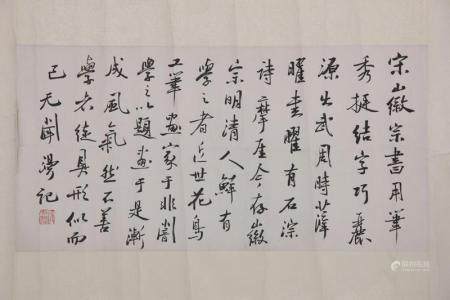 宋徽宗書用筆
秀挺結字巧麗
源出武周時薛
曜書曜有石淙
詩摩崖今存徽
宗明清人鮮有
學之者近世花鳥
工筆畫家于非闇
學之以題畫于是漸
成風氣然不善
學者徒具形似而
已 无 漫记